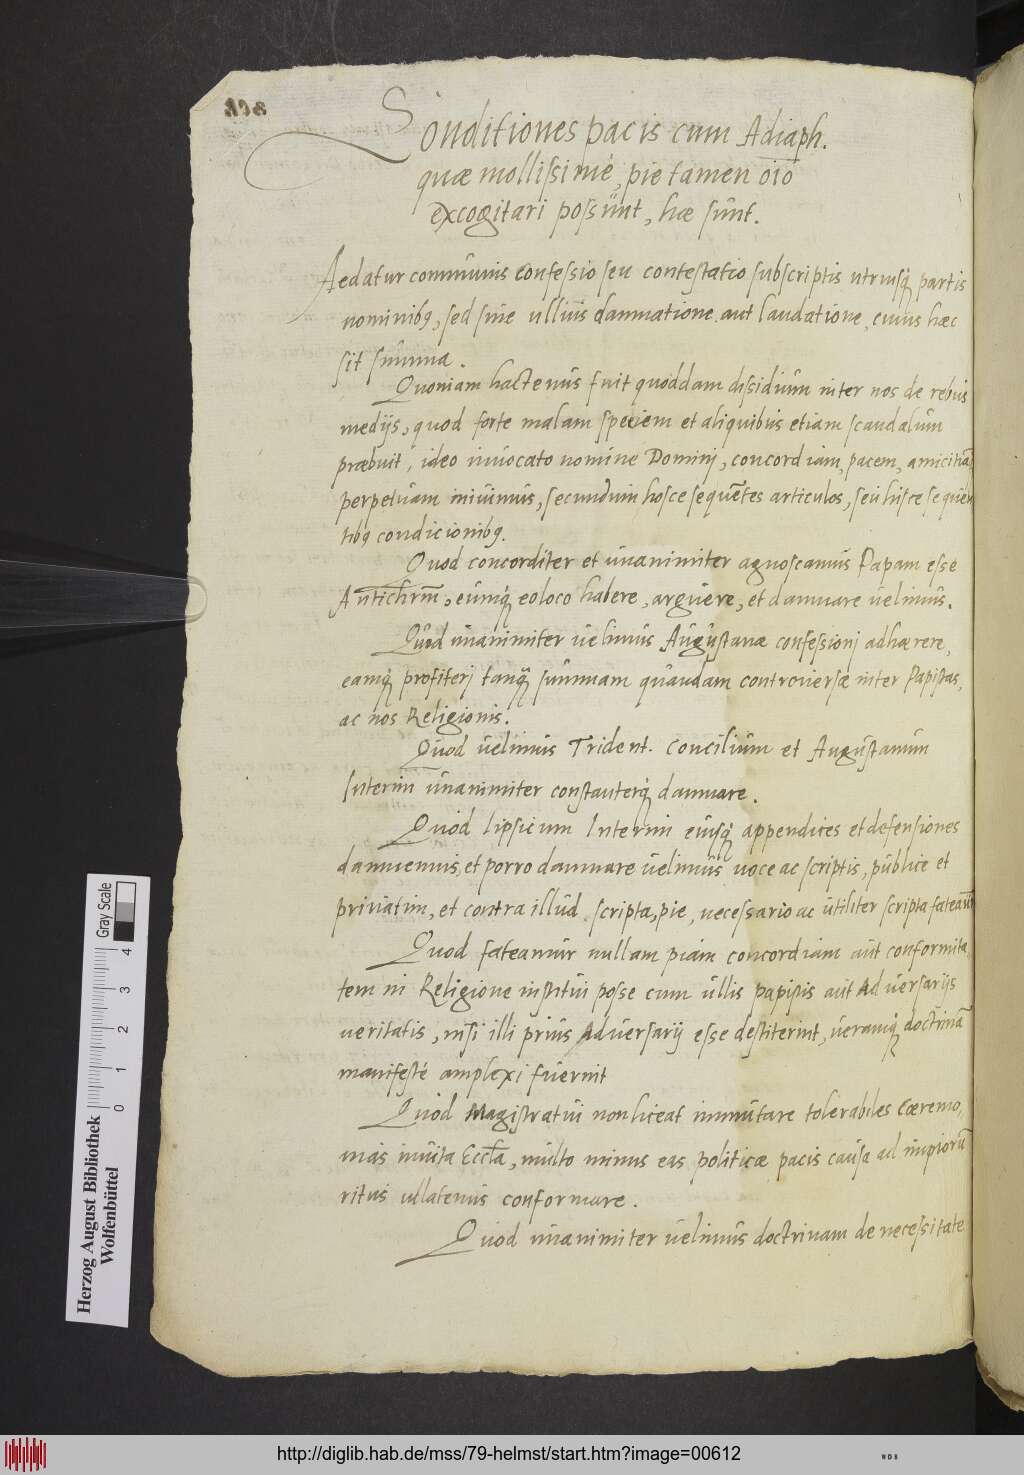 Conditiones pacis cum Adiaph.
quæ mollissimè, pie tamen oīo
excogitari possunt, hæ sunt.
Aedatur communis confessio seu contestatio subscriptis utriusq́ partis
nominibq, sed sine ullius damnatione aut laudatione, cuius hæc
sit summa.
Quoniam hactenus fuit quoddam dissidium inter nos de rebus
medijs, quod forte malam speciem et aliquibus etiam scandalum
præbuit, ideo invocato nomine Domini, concordiam, pacem, amicitiā
perpetuam inivimus, secundum hosce sequētes articulos, seu hisce sequen
tibq condicionibq.
Quod concorditer et unanimiter agnoscamus Papam esse
Antichrm̄, eumq́ eo loco habere, arguere, et damnare velimus.
Quod unanimiter velimus Augustanæ confessionj adhærere,
eamq́ profiterj tanq̄ summam quandam controversiæ inter Papistas,
ac nos Religionis.
Quod velimus Trident. concilium et Augustanum
Interim unanimiter constanterq́ damnare.
Quod lipsicum Interim eiusq́ appendices et defensiones
damnemus, et porro damnare velimus voce ac scriptis, publice et
privatim, et contra illud scripta, pie, necessario ac utiliter scripta fateamur
Quod fateamur nullam piam concordiam aut conformita,
tem in Religione institui posse cum ullis papistis aut Adversarijs
veritatis, nisi illi prius Adversarij esse destiterint, veramq́ doctrinā
manifestè amplexi fuerint
Quod Magistratui non liceat immutare tolerabiles Cæremo,
nias invita Eccl̄a, multo minus eas politicæ pacis causa ad impiorū
ritus ullatenus conformare.
Quod unanimiter velimus doctrinam de necessitate
Herzog August Bibliothek
Wolfenbüttel
0 1 2 3 4
Gray Scale
http://diglib.hab.de/mss/79-helmst/start.htm?image=00612